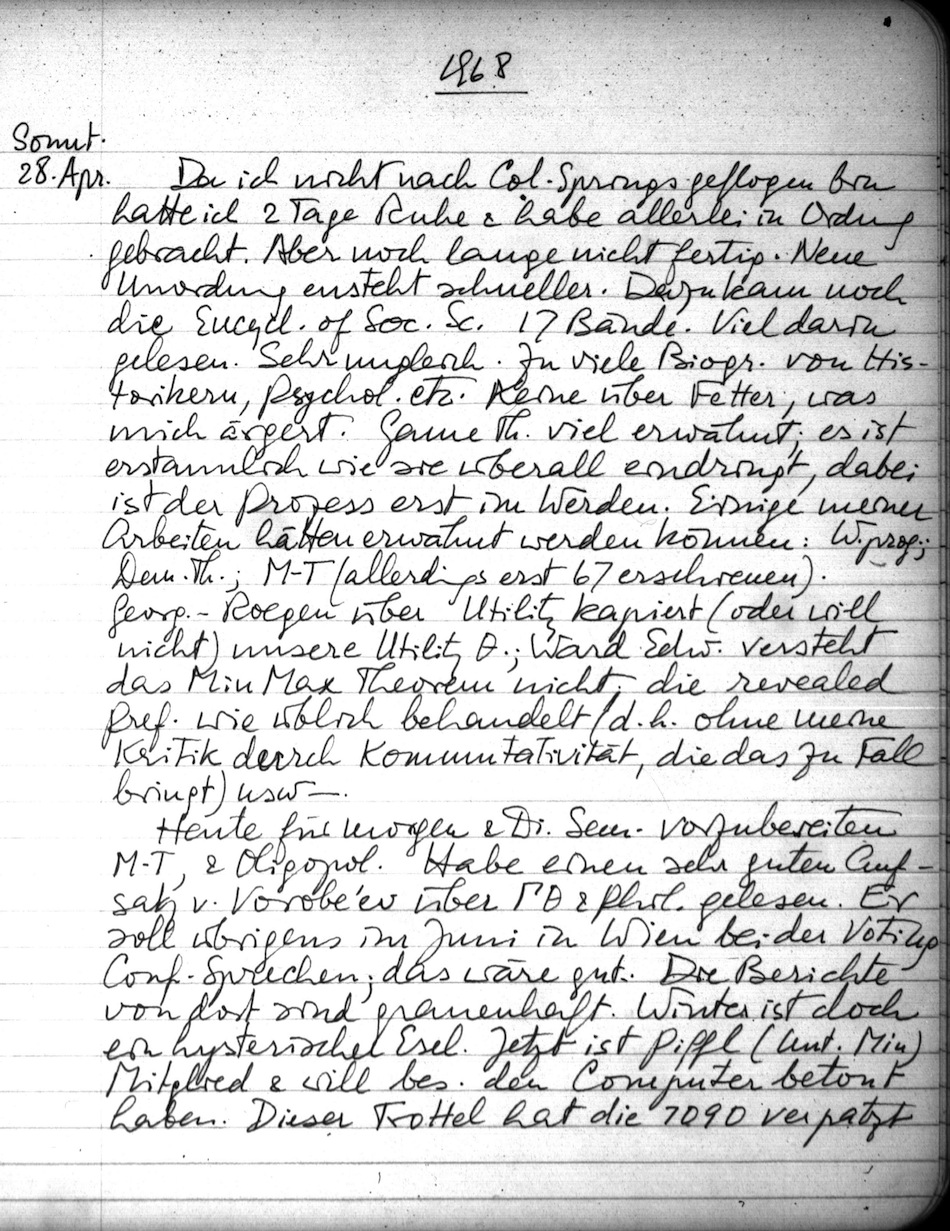 1968
Sonnt.
28. Apr. Da ich nicht nach Col. Springs geflogen bin
hatte ich 2 Tage Ruhe & habe allerlei in Ordnung
gebracht. Aber noch lange nicht fertig. Neue
Unordnung ensteht schneller. Dazu kam noch
die Encycl. of Soc. Sc. 17 Bände. Viel darin
gelesen. Sehr ungleich. Zu viele Biogr. von His-
torikern, Psychol. etc. Keine über Fetter, was
mich ärgert. Game Th. viel erwähnt; es ist
erstaunlich wie sie überall eindringt, dabei
ist der Prozess erst im Werden. Einige meiner
Arbeiten hätten erwähnt werden können: W.prog.;
Dem. Th.; M-T (allerdings erst 67 erschienen).
Georg.-Roegen über Utility kapiert (oder will
nicht) unsere Utility θ.; Ward Edw. versteht
das MinMax Theorem nicht; die revealed
pref. wie üblich behandelt (d.h. ohne meine
Kritik durch Kommutativität, die das zu Fall
bringt) usw—.
Heute für morgen & Di. Sem. vorzubereiten
M-T, & Oligopol. Habe einen sehr guten Auf-
satz v. Vorobe'ev über Γθ & Phil. gelesen. Er
soll übrigens im Juni in Wien bei der Voting
Conf. Sprechen; das wäre gut. Die Berichte
von dort sind grauenhaft. Winter ist doch
ein hysterischer Esel. Jetzt ist Piffl (Unt. Min)
Mitglied & will bes. den Computer betont
haben. Dieser Trottel hat die 7090 verpatzt